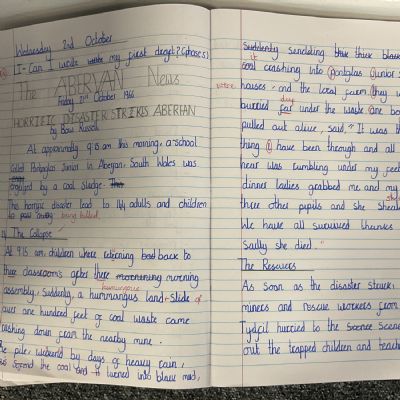 Wednesday 2nd October
I-Can I write my first draft? (phase 5)
The ABERVAN News
Friday 21st October 1966
HORRIFIC DISASTER STRIKES ABERFAN
by Beau Russell
At approximatly 9:15 am this morning, a school
called Pantglas Junior in Aberfan, South Wales was
engulfed by a coal sludge.
This horrific disater lead to 144 adults and children
to being killed.
The Collapse
At 9:15 am children where retering back to
there classrooms after there morning
humungous
assembly. Suddenly, a hummangus land slide of
over one hundred feet of coal waste came
crashing down from the nearby mine.
The pile, weakend by days of heavy rain,
the coal and it turned into black mud,
Suddenly sendding thick black
coal crashing into Pantglas Junior
houses and the local farm, they
burried under the waste one bo
pulled out alive, said, "It was th
thing I have been through and all
hear was rumbling under my fee
dinner ladies grabbed me and my
three other pupils and she
We have all survived thanks
Sadly she died."
The Rescuers
As soon as the disaster struck,
miners and rescue workers from
Tydfil hurried to the Scene
out the trapped children and teache